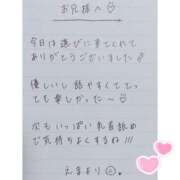 お兄様へ♡
今日は遊びに来てくれて
ありがとうございました
優しいし話しやすくてとっ
ても楽しかった〜♡
次もいっぱい乳首舐め
で気持ちよくするね!!!
より